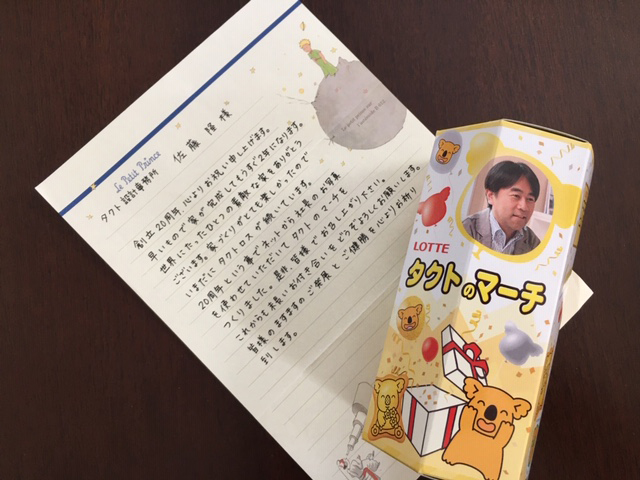 Le Petit Prince
タクト設計事務所
佐藤 隆 様
創立20周年 心よりお祝い申し上げます。
早いもので家が完成してもうすぐ2年になります。
世界でたったひとつの素敵な家をありがとう
ございます。家づくりがとても楽しかったので
いまだにタクトロスが続いています。
20周年という事でネットから社長のお写真
を使わせていただいてタクトのマーチを
つくりました。是非皆様でお召し上がり下さい。
これからも末長いお付き合いをどうぞよろしくお願いします。
皆様のますますのご発展とご健勝を心よりお祈り
致します。
LOTTE
タクトのマーチ